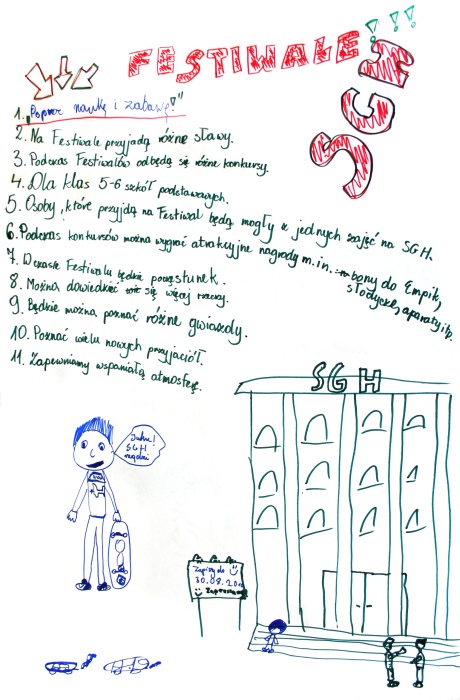 FESTIWALE SGH!!!
1. "Poprzez naukę i zabawę!"
2. Na Festiwale przyjadą różne sławy.
3. Podczas Festiwalów odbędą się różne konkursy.
4. Dla klas 5-6 szkół podstawowych.
5. Osoby, które przyjdą na Festiwal będą mogły z jednych zajęć na SGH.
6. Podczas konkursów można wygrać atrakcyjne nagrody m.in. bony do Empik,
słodycze, aparaty itp.
7. W czasie Festiwalu będzie poczęstunek.
8. Można dowiedzieć się więcej rzeczy.
9. Będzie można poznać różne gwiazdy.
10. Poznać wielu nowych przyjaciół.
11. Zapewniamy wspaniałą atmosferę.
SGH
Juhu!
SGH
rządzi
Zapisy do
30.08.20
Zapraszamy